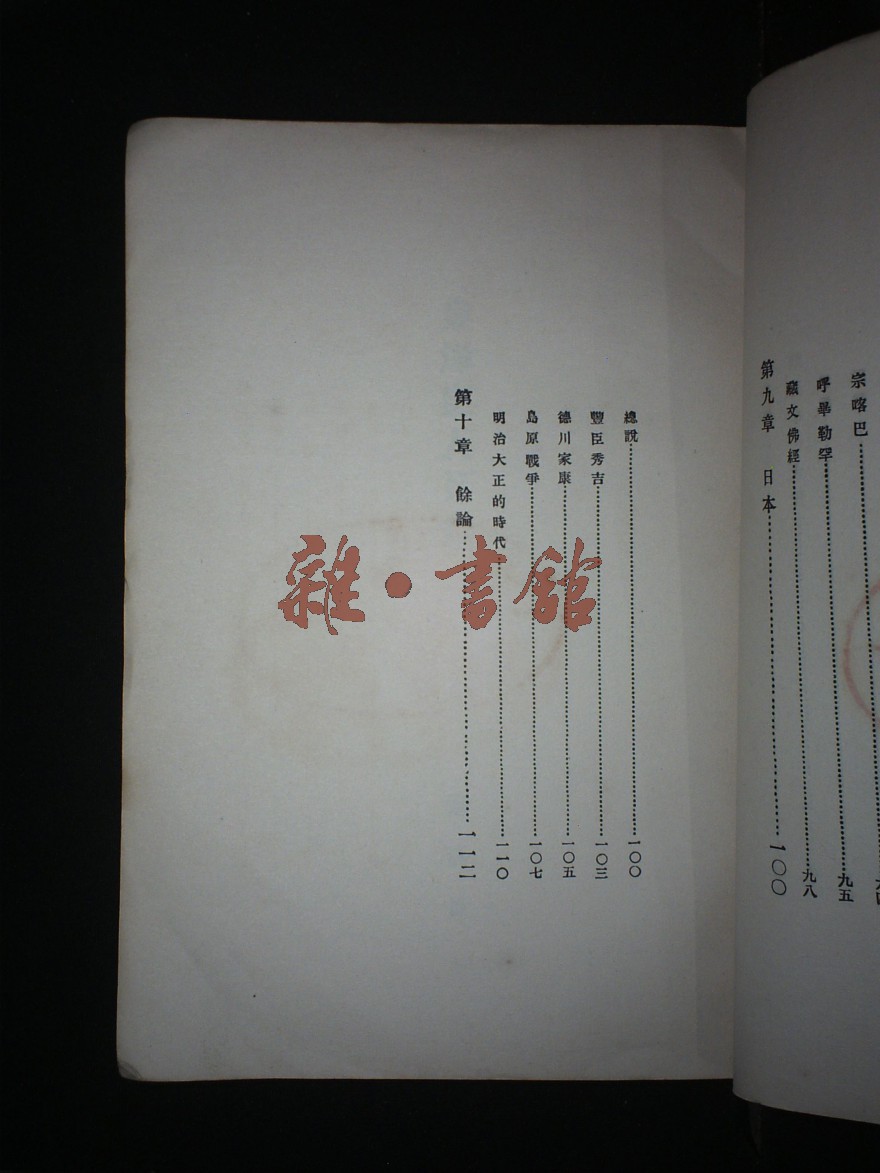 宗喀巴
呼畢勒罕…九五
藏文佛經…九八
第九章 日本…一〇〇
總說…一〇〇
豐臣秀吉…一〇三
德川家康…一〇五
島原戰爭…一〇七
明治大正的時代…一一〇
第十章 餘論…一一二
雜·書館